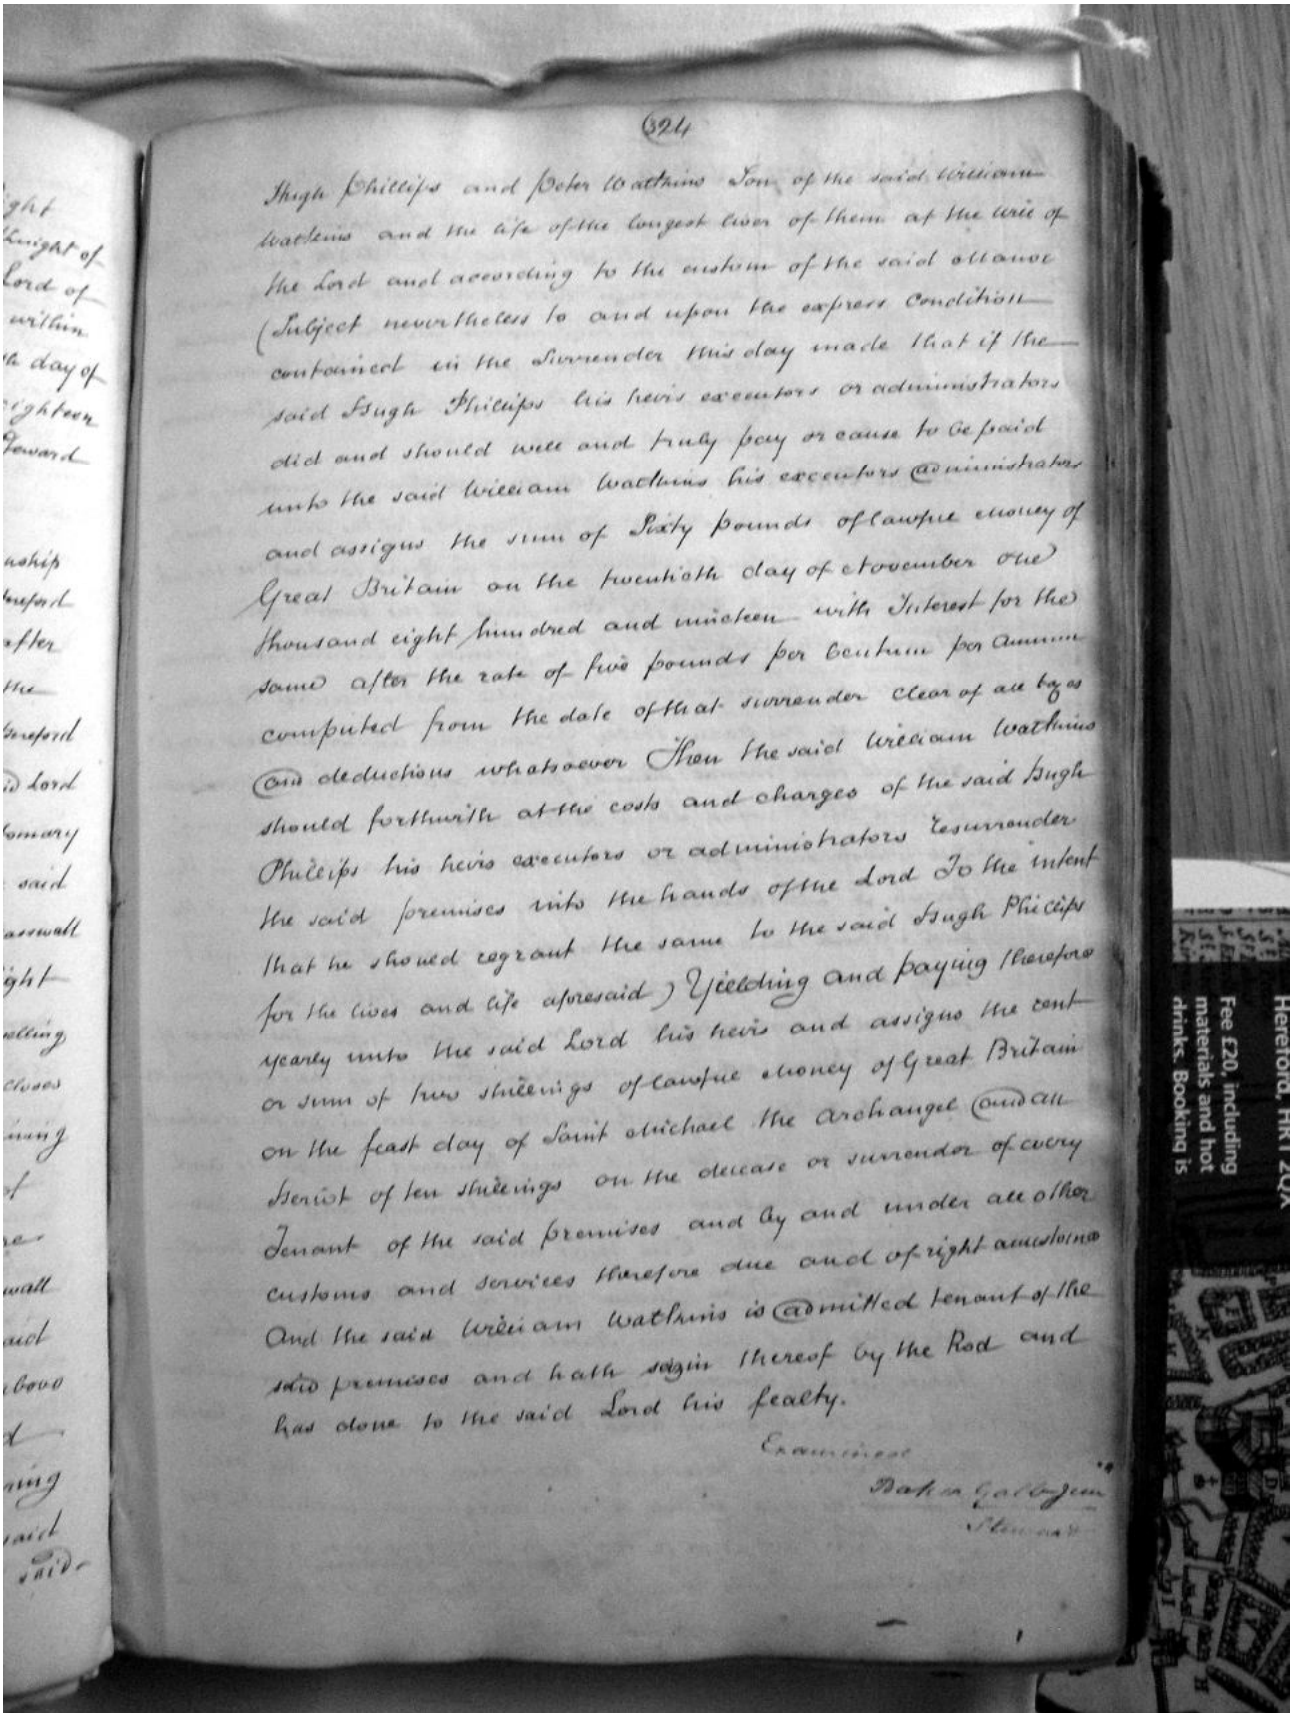 324
Hugh Phillips and Peter Watkins Son of the said William
Watkins and the life of the longest liver of them at the will of
the Lord and according to the custom of the said Manor
(Subject nevertheless to and upon the express Condition
contained in the Surrender this day made that if the
said Hugh Phillips his heirs executors or administrators
did and should well and truly pay or cause to be paid
unto the said William Watkins his executors administrators
and assigns the sum of Sixty pounds of lawful money of
Great Britain on the twentieth day of November one
thousand eight hundred and nineteen with Interest for the
same after the rate of five pounds per Centum per Annum
computed from the date of that surrender clear of all taxes
and deductions whatsoever Then the said William Watkins
should forthwith at the costs and charges of the said Hugh
Phillips his heirs executors or administrators resurrender
the said premises into the hands of the Lord To the intent
that he should regrant the same to the said Hugh Phillips
for the lives and life aforesaid) Yielding and paying therefore
yearly unto the said Lord his heirs and assigns the rent
or sum of two shillings of lawful money of Great Britain
on the feast day of Saint Michael the Archangel and an
Heriot of ten shillings on the decease or surrender of every
Tenant of the said premises and by and under all other
customs and services therefore due and of right accustomed
And the said William Watkins is admitted tenant of the
said premises and hath seizin thereof by the Rod and
has done to the said Lord his fealty.
Examined
Steward
ght
Knight of
Lord of
within
day of
eighteen
Steward
after
the
Hereford
Lord
said
ght
closes
of
wall
said
said
Hereford, HR1 2QX
Fee £20, including
materials and hot
drinks. Booking is